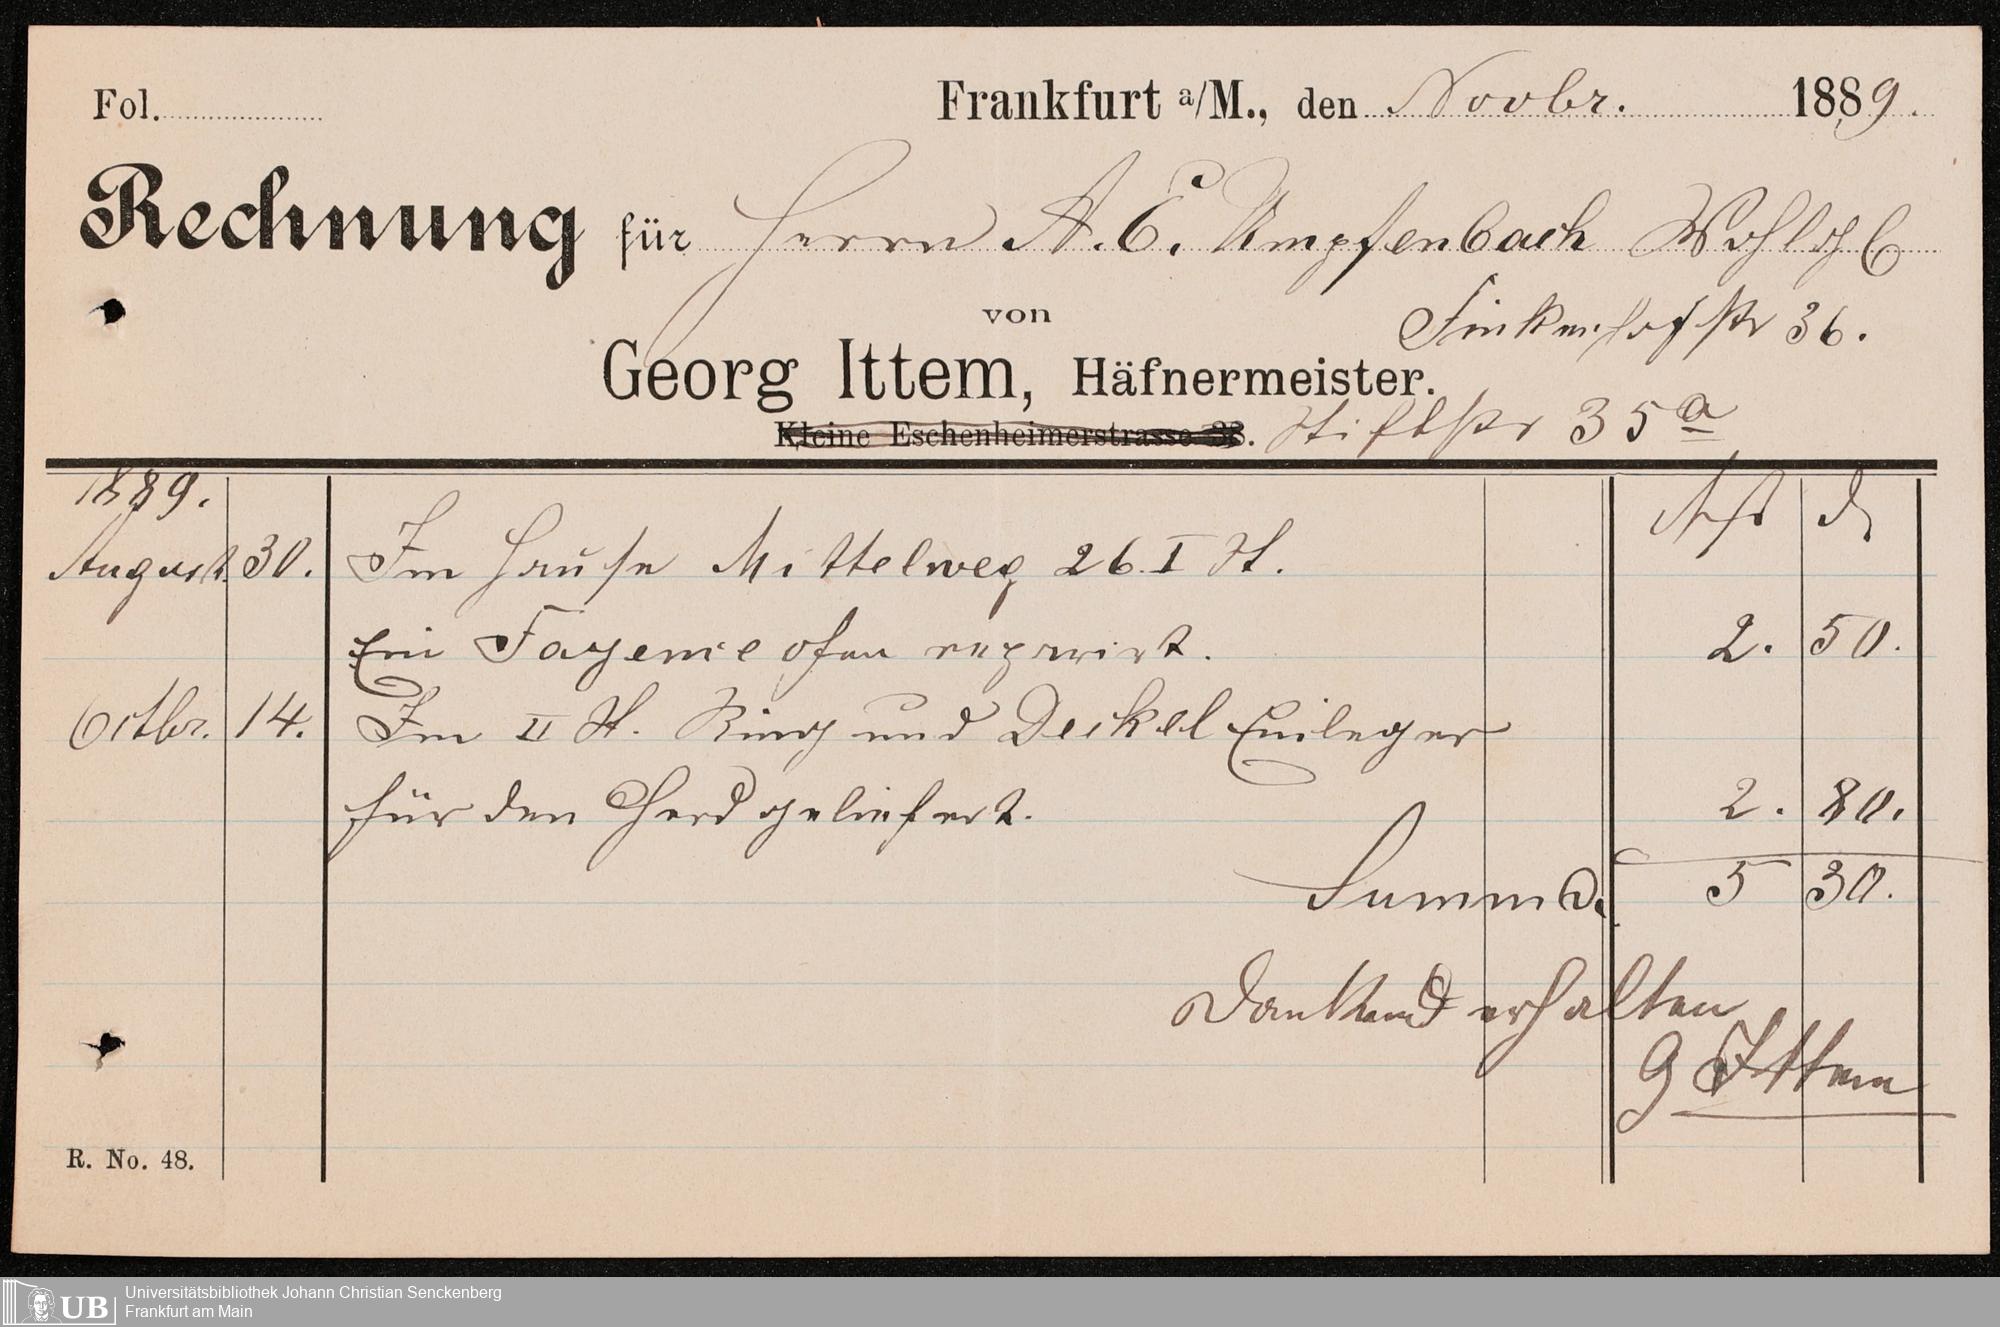 Fol.
Frankfurt a/M., den Novbr. 1889.
Rechnung für Herrn A. E. Umpfenbach Wohlgb
von
Finkenhofstr 36.
Georg Ittem, Häfnermeister.
Kleine Eschenheimerstrasse 33. Stiftstr 35a
1889.
August. 30. Im Hause Mittelweg 26. I St.
Ein Fayence ofen reparirt. 2. 50.
Octbr. 14. Im II St. Ring und Deckel Einleger
für den Herd geliefert. 2. 80.
Summa. 5 30.
Dankend erhalten
G Ittem
R. No. 48.
UB
Universitätsbibliothek Johann Christian Senckenberg
Frankfurt am Main